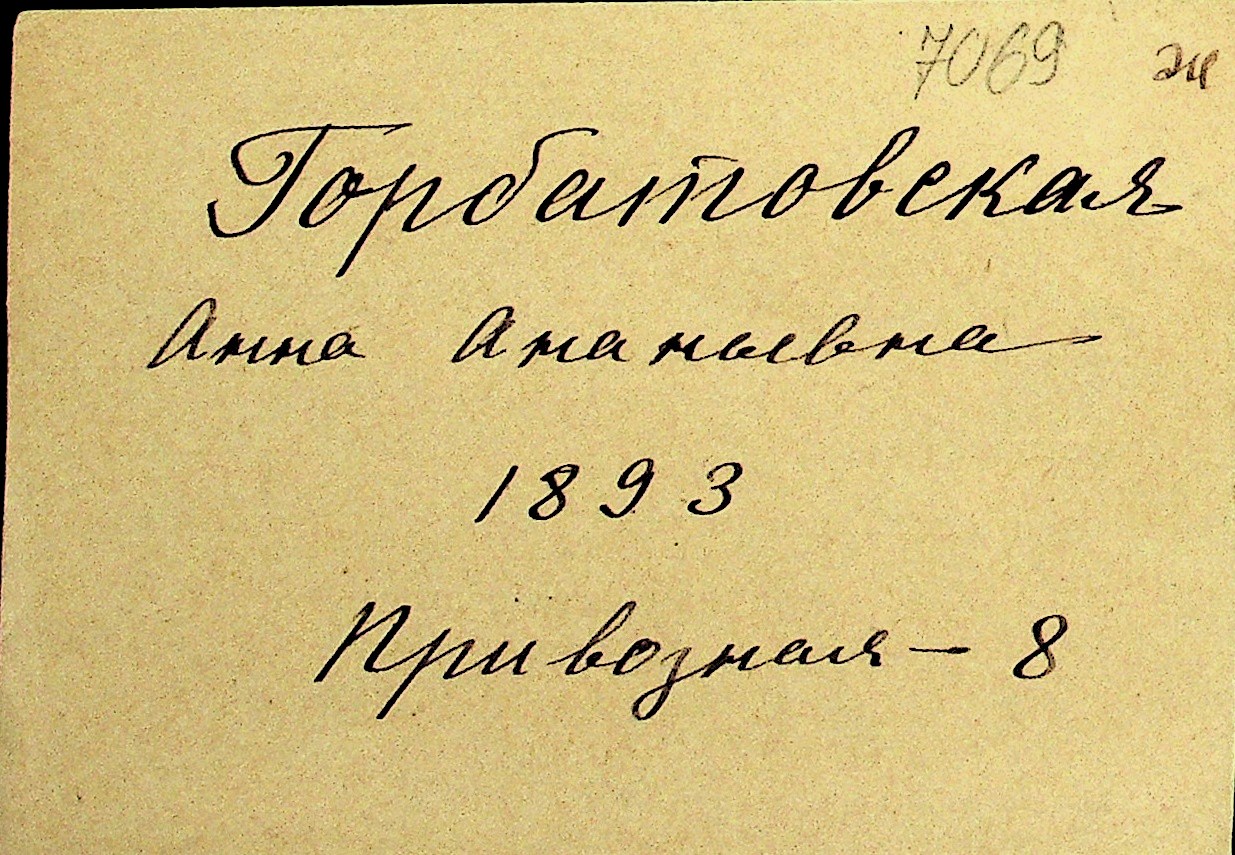 7069 ж
Горбатовская
Анна Ананьевна
1893
Привозная – 8